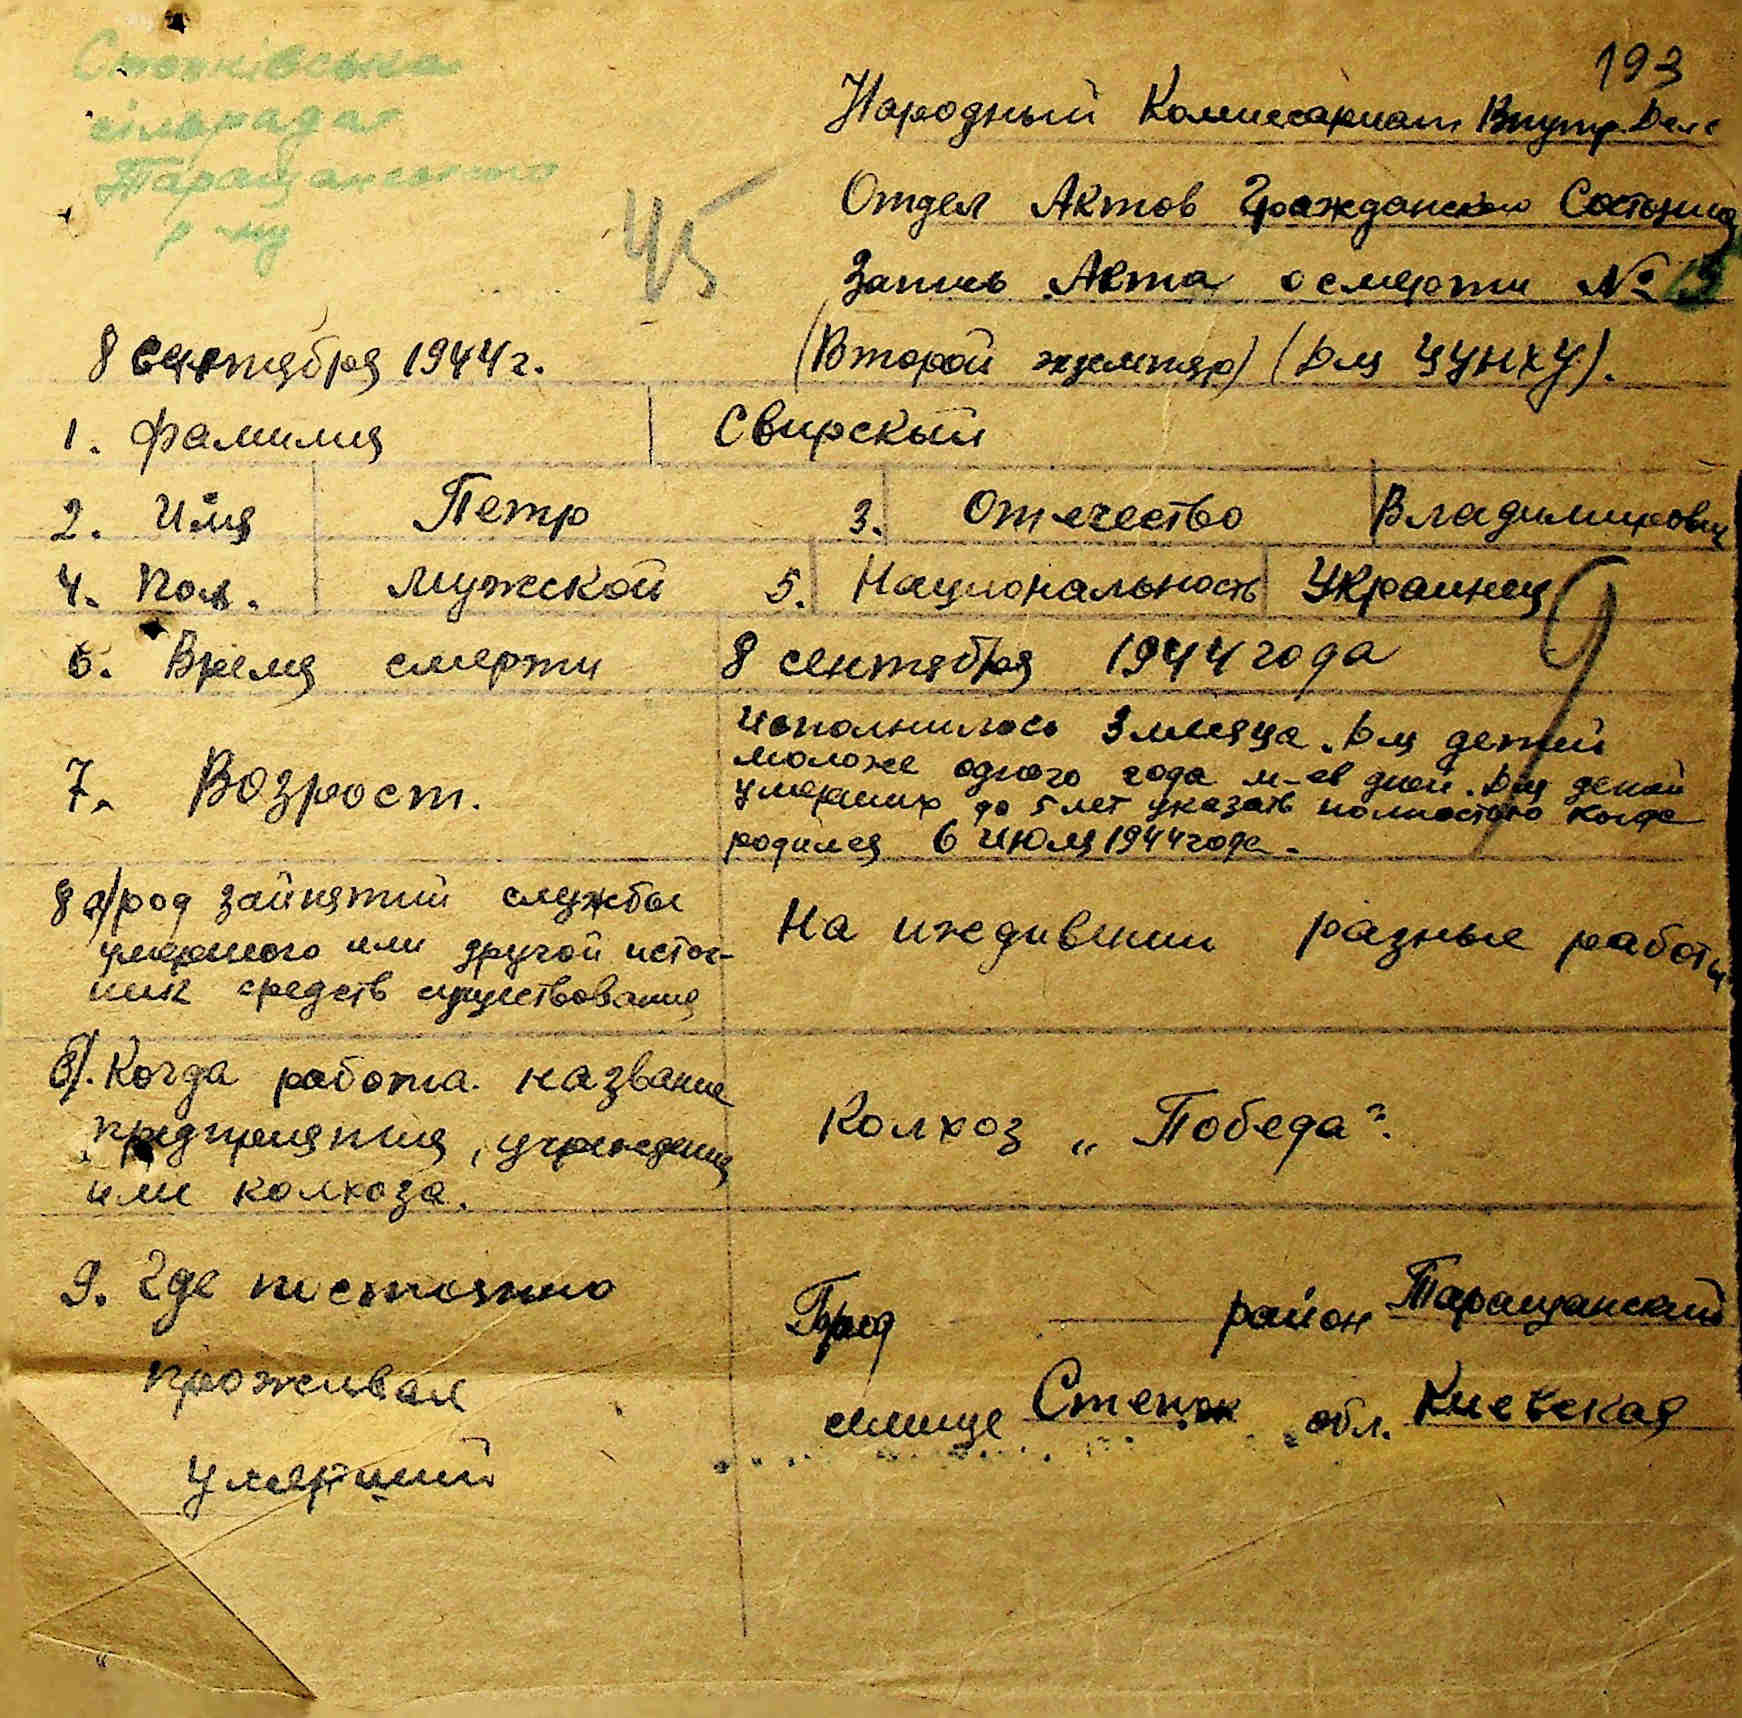 193
сільрада
Таращанського
р-ну
45
Народный Комиссариат Внутр. Дел
Отдел Актов Гражданского Состояния
Запись Акта о смерти №
8 сентября 1944 г.
(Второй экземпляр) (Для ЦУНХУ).
1. Фамилия Свирский
2. Имя Петр 3. Отечество Владимирович
4. Пол. Мужской 5. Национальность Украинец
6. Время смерти 8 сентября 1944 года
7. Возрост.
Исполнилось 3 месяца. Для детей
моложе одного года м-ев дней. Для детей
умерших до 5 лет указать полностью когда
родился 6 июля 1944 года.
8 а) род зайнятий службы
умершого или другой источ-
ник средств существования
На иждивении разные работы
б). Когда работа. название
предприятия, учреждения
или колхоза.
Колхоз „Победа".
9. Где постоянно
проживал
умерший
Город район Таращанский
селище Степок обл. Киевская